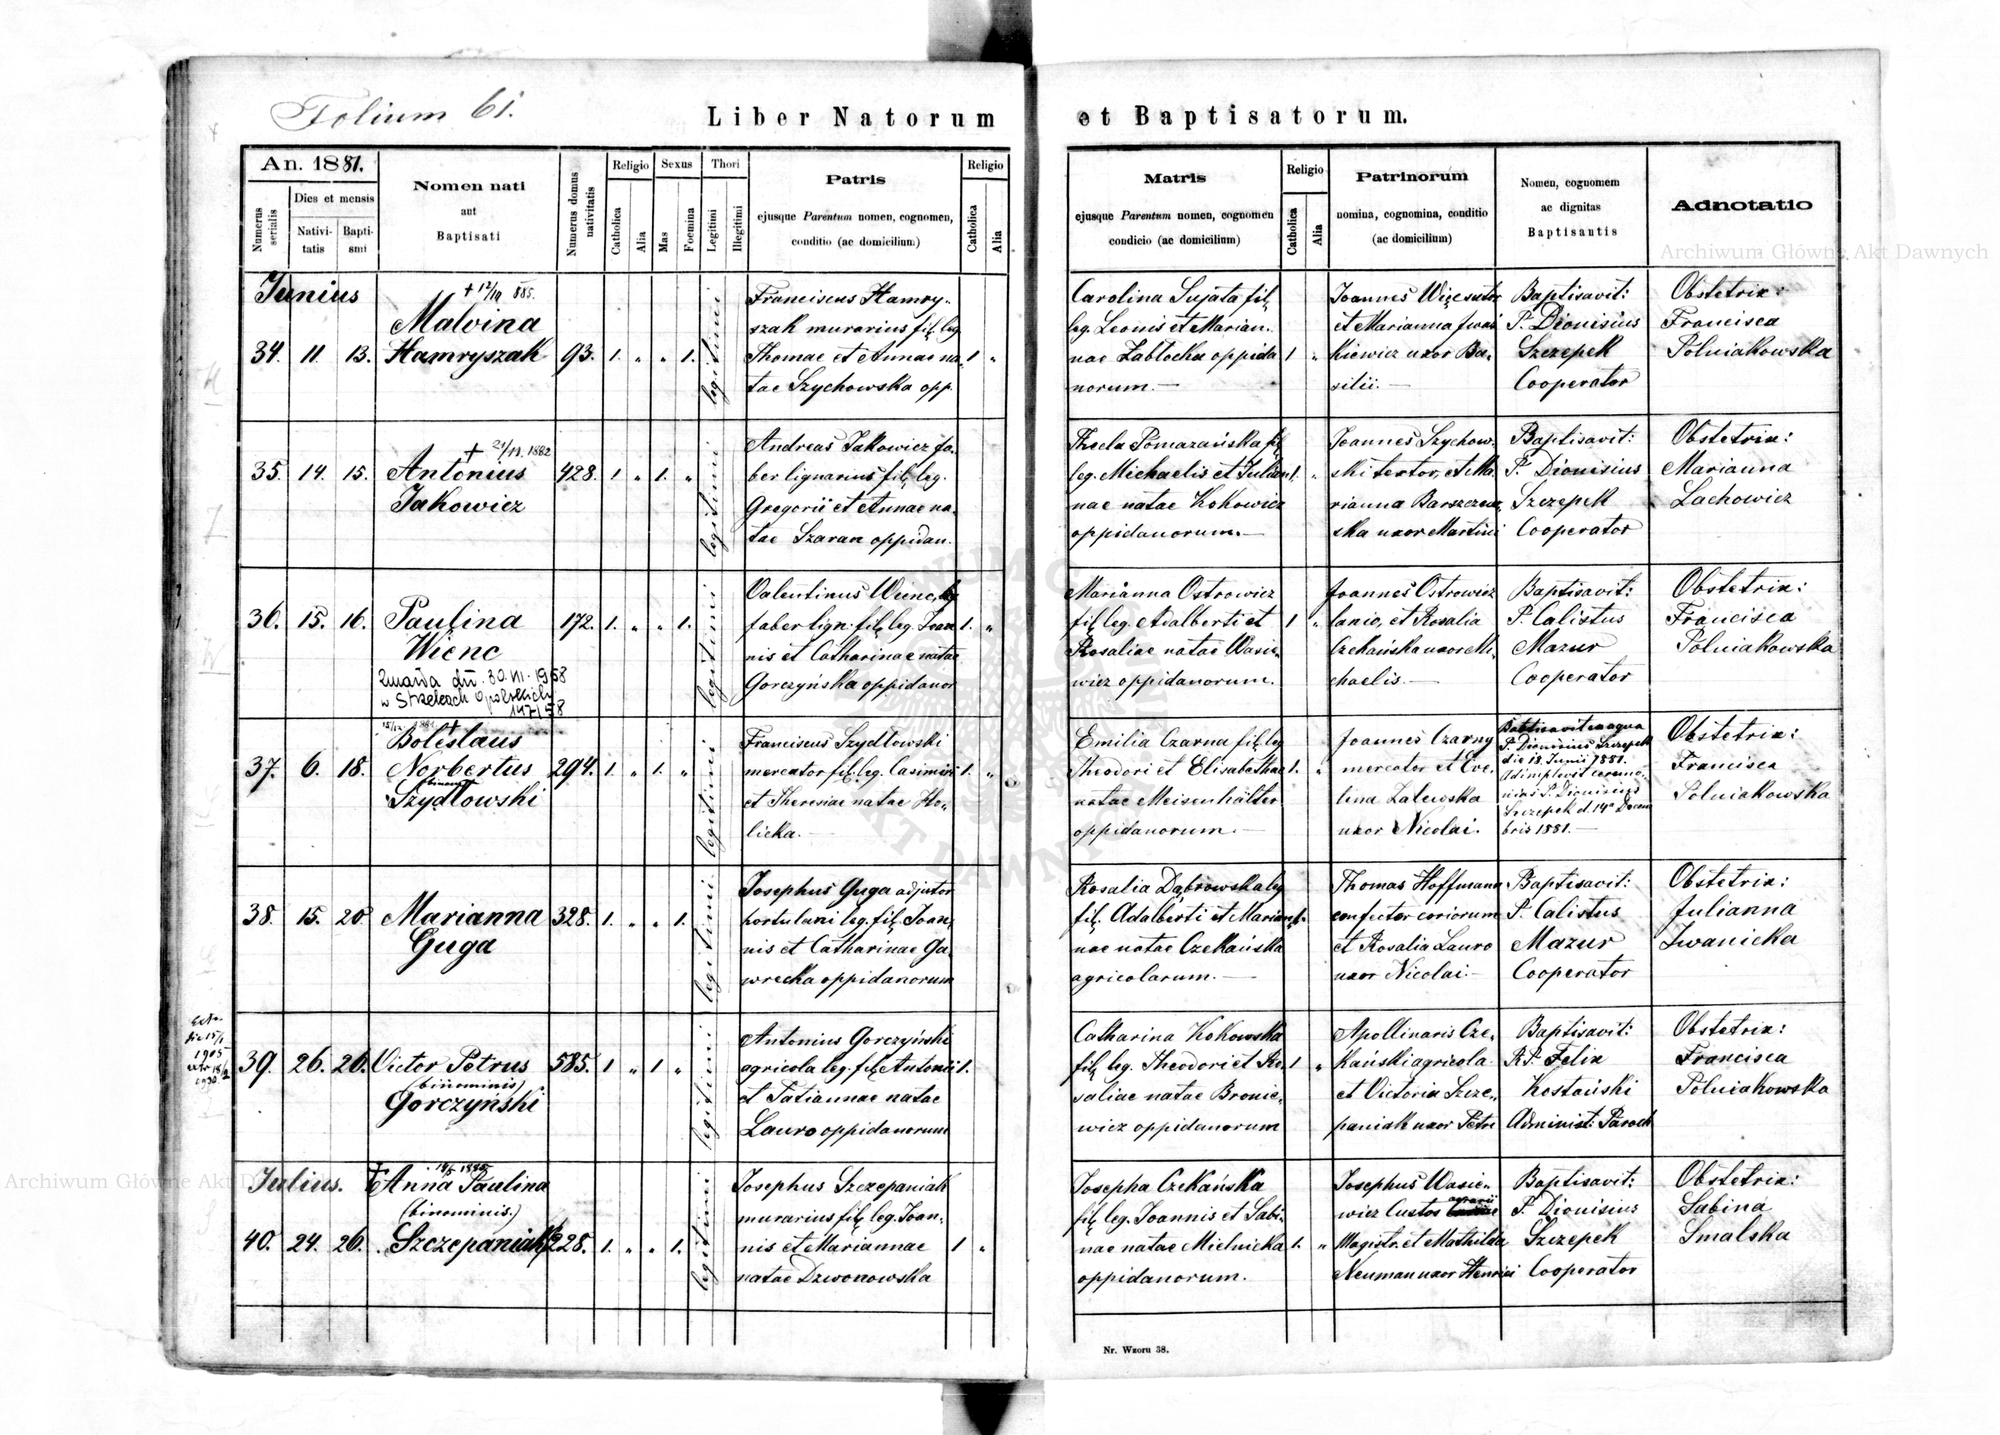 Folium 61.
Liber Natorum et Baptisatorum.
An. 1881.
Numerus serialis
Dies et mensis
Nativitatis
Baptismi
Nomen nati
aut
Baptisati
Numerus domus nativitatis
Religio
Catholica
Alia
Sexus
Mas
Foemina
Thori
Legitimi
Illegitimi
Patris
ejusque Parentum nomen, cognomen,
conditio (ac domicilium)
Religio
Catholica
Alia
Matris
ejusque Parentum nomen, cognomen
condicio (ac domicilium)
Religio
Catholica
Alia
Patrinorum
nomina, cognomina, conditio
(ac domicilium)
Nomen, cognomem
ac dignitas
Baptisantis
Adnotatio
Archiwum Główne Akt Dawnych
Junius
34. 11. 13.
+ 12/10 885.
Malvina
Hamryszak
93. 1. „ „ 1.
legitimi
Franciscus Hamry-
szak murarius fil. leg.
Thomae et Annae na-
tae Szychowska opp.
1 „
Carolina Sujata fil.
leg. Leonis et Marian-
nae Zabłocka oppida
norum.—
1 „
Joannes Więc sutor
et Marianna Iwaś
kiewicz uxor Ba-
silii.—
Baptisavit:
P. Dionisius
Szczepek
Cooperator
Obstetrix:
Francisca
Polniakowska
35. 14. 15.
+ 21/11. 1882
Antonius
Jakowicz
428. 1. „ 1. „
legitimi
Andreas Jakowicz fa-
ber lignarius fil. leg.
Gregorii et Annae na-
tae Szaran oppidan.
Thecla Pomazańska fil.
leg. Michaelis et Julian
nae natae Kokowicz
oppidanorum.—
1. „
Joannes Szychow-
ski textor, et Ma-
rianna Barszczew-
ska uxor Martini
Baptisavit:
P. Dionisius
Szczepek
Cooperator
Obstetrix:
Marianna
Lachowicz
36. 15. 16.
Paulina
Wienc
Zmarła dn. 30.VI.1958
w Strzelcach Opolskich
147/58
172. 1. „ „ 1.
legitimi
Valentinus Wienc,
faber lign. fil. leg. Joan
nis et Catharinae natae
Gorczyńska oppidanor
1. „
Marianna Ostrowicz
fil. leg. Adalberti et
Rosaliae natae Wasie-
wicz oppidanorum.
1 „
Joannes Ostrowicz
lanio, et Rosalia
Czekańska uxor Mi-
chaelis.—
Baptisavit:
P. Calistus
Mazur
Cooperator
Obstetrix:
Francisca
Polniakowska
37. 6. 18.
15/12. 1881 +
Boleslaus
Norbertus
binom.
Szydłowski
294. 1. „ 1. „
legitimi
Franciscus Szydłowski
mercator fil. leg. Casimiri
et Theresiae natae Ho-
licka.—
1. „
Emilia Czarna fil. leg
Theodori et Elisabethae
natae Meisenhälter
oppidanorum.—
1. „
Joannes Czarny
mercator et Eve-
lina Zalewska
uxor Nicolai.
Baptisavit ex aqua
P. Dionisius Szczepek
die 18. Junii 1881.
Adimplevit ceremo-
nias P. Dionisius
Szczepek d. 14a Decem
bris 1881.—
Obstetrix:
Francisca
Polniakowska
38. 15. 20
Marianna
Guga
328. 1. „ „ 1.
legitimi
Josephus Guga adjutor
hortulani leg. fil. Joan-
nis et Catharinae Ga-
wrecka oppidanorum
Rosalia Dąbrowska leg
fil. Adalberti et Marian
nae natae Czekańska
agricolarum.—
Thomas Hoffmann
confector coriorum
et Rosalia Lauro
uxor Nicolai.—
Baptisavit:
P. Calistus
Mazur
Cooperator
Obstetrix:
Julianna
Iwanicka
1905
39. 26. 26.
Victor Petrus
(binominis)
Gorczyński
585. 1 „ 1 „
legitimi
Antonius Gorczyński
agricola leg. fil. Antonii
et Tatiannae natae
Lauro oppidanorum
1.
Catharina Kokowska
fil. leg. Theodori et Ro-
saliae natae Bronie-
wicz oppidanorum
1 „
Apollinaris Cze-
kański agricola
et Victoria Szcze-
paniak uxor Petri
Baptisavit:
R.P. Felix
Kostański
Administ. Paroch
Obstetrix:
Francisca
Polniakowska
Julius.
40. 24. 26.
Anna Paulina
(binominis.)
Szczepaniak
228. 1. „ „ 1.
legitimi
Josephus Szczepaniak
murarius fil. leg. Joan-
nis et Mariannae
natae Dzwonowska
1 „
Josepha Czekańska
fil. leg. Joannis et Sabi-
nae natae Mielnicka
oppidanorum.
1. „
Josephus Wasie-
wicz Custos
Magistr. et Mathilda
Neuman uxor Henrici
Baptisavit:
P. Dionisius
Szczepek
Cooperator
Obstetrix:
Sabina
Smalska
Archiwum Główne Akt Dawnych
Nr. Wzoru 38.